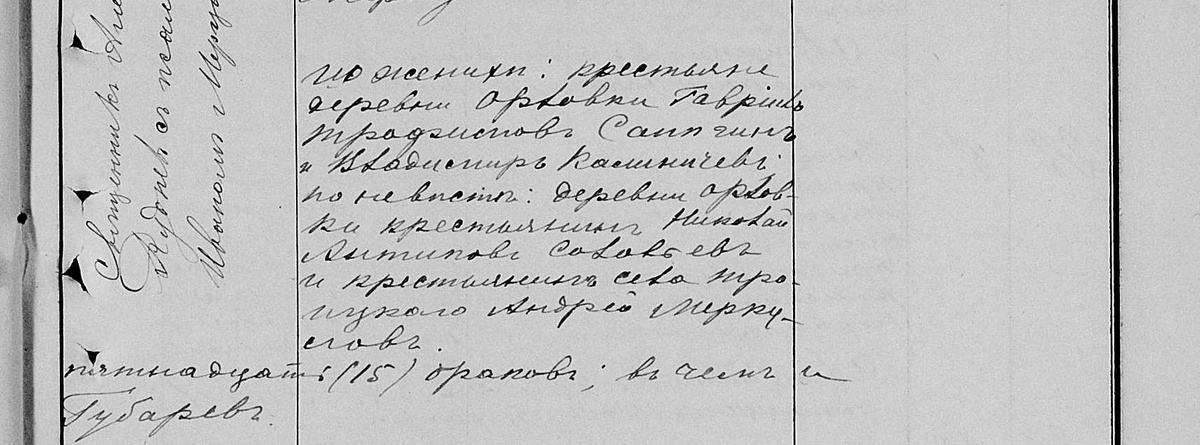 Священникъ
Руднекъ съ псал
Иваномъ Мерку
по женихѣ: крестьяне
деревни Орловки Гавріилъ
Трофимовъ Сапегинъ
и Владимиръ Калиничевъ
по невѣстѣ: деревни Орлов-
ки крестьянинъ Николай
Антиповъ Соловьевъ
и крестьянинъ села Тро-
ицкаго Андрей Мерку-
ловъ.
пятнадцать (15) браковъ; въ чемъ и
Губаревъ.